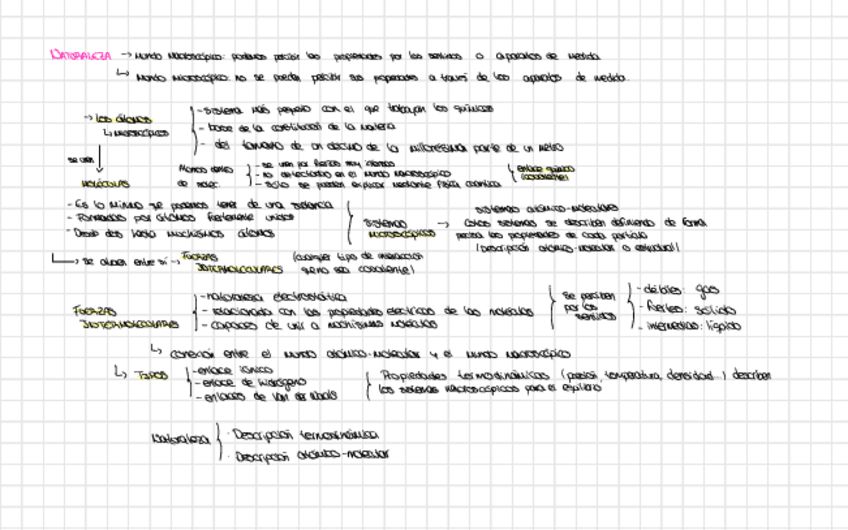 NATURALEZA → Mundo macroscópico: podemos percibir las propiedades por los sentidos o aparatos de medida.
↳ Mundo microscópico: no se pueden percibir sus propiedades a través de los aparatos de medida.
→ Los átomos
↳ microscópicos
- sistema más pequeño con el que trabajan los químicos
- base de la constitución de la materia
- del tamaño de un décimo de la millonésima parte de un metro
se unen
MOLÉCULAS
Átomos dentro de molec.
- se unen por fuerzas muy intensas
- no detectados en el mundo macroscópico
- sólo se pueden explicar mediante física cuántica
enlace químico (covalente)
- Es lo mínimo que podemos tener de una sustancia
- Formadas por átomos fuertemente unidos
- Desde dos hasta muchísimos átomos
SISTEMAS MICROSCÓPICOS →
sistemas atómico-moleculares
estos sistemas se describen definiendo de forma
precisa las propiedades de cada partícula
(Descripción atómico-molecular o estructural)
↳ se atraen entre sí → FUERZAS INTERMOLECULARES
(cualquier tipo de interacción que no sea covalente)
FUERZAS INTERMOLECULARES
- naturaleza electrostática
- relacionada con las propiedades eléctricas de las moléculas
- capaces de unir a muchísimas moléculas
se perciben por los sentidos
- débiles: gas
- fuertes: sólido
- intermedias: líquido
↳ conexión entre el mundo atómico-molecular y el mundo macroscópico
↳ TIPOS
- enlace iónico
- enlace de hidrógeno
- enlaces de Van der Waals
Propiedades termodinámicas (presión, temperatura, densidad...) describen
los sistemas macroscópicos para el equilibrio
Naturaleza
· Descripción termodinámica
· Descripción atómico-molecular